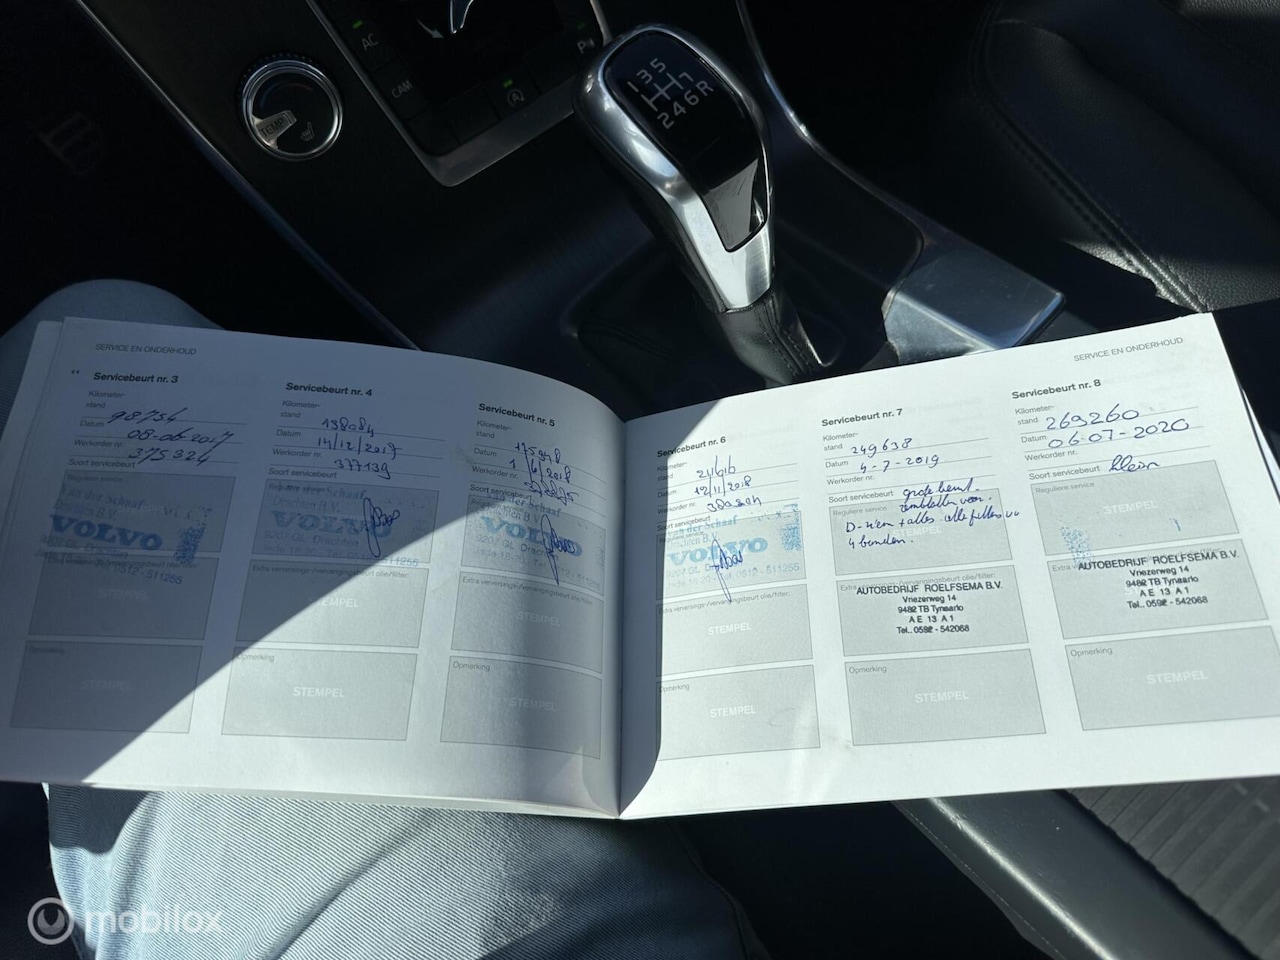 AC
CAM
TEMP
P
1 3 5 7
2 4 6 R
SERVICE EN ONDERHOUD
Servicebeurt nr. 3
Kilometer-
stand 98754
Datum 08-06-2017
Werkorder nr. 375324
Soort servicebeurt
Reguliere service
VOLVO
0512-511255
STEMPEL
Opmerking
STEMPEL
Servicebeurt nr. 4
Kilometer-
stand 138084
Datum 14/12/2017
Werkorder nr. 377139
Soort servicebeurt
van der Schaaf
Drachten B.V.
VOLVO
9207 GL Drachten
STEMPEL
Opmerking
STEMPEL
Servicebeurt nr. 5
Kilometer-
stand
Datum
Werkorder nr.
Soort servicebeurt
van der Schaaf
Drachten B.V.
VOLVO
9207 GL Drachten
Tel. 0512-511255
Extra verversings-/vervangingsbeurt olie/filter:
STEMPEL
Opmerking
STEMPEL
SERVICE EN ONDERHOUD
Servicebeurt nr. 6
Kilometer-
stand
Datum 12/11/2018
Werkorder nr.
Soort servicebeurt
van der Schaaf
Drachten B.V.
VOLVO
9207 GL Drachten
Tel. 0512-511255
Extra verversings-/vervangingsbeurt olie/filter:
STEMPEL
Opmerking
STEMPEL
Servicebeurt nr. 7
Kilometer-
stand 249638
Datum 4-7-2019
Werkorder nr.
Soort servicebeurt grote beurt.
Reguliere service
4 banden.
Extra verversings-/vervangingsbeurt olie/filter:
AUTOBEDRIJF ROELFSEMA B.V.
Vriezerweg 14
9482 TB Tynaarlo
A E 13 A 1
Tel.. 0592 - 542068
Opmerking
STEMPEL
Servicebeurt nr. 8
Kilometer-
stand 269260
Datum 06-07-2020
Werkorder nr.
Soort servicebeurt klein
Reguliere service
STEMPEL
AUTOBEDRIJF ROELFSEMA B.V.
Vriezerweg 14
9482 TB Tynaarlo
A E 13 A 1
Tel.. 0592 - 542068
Opmerking
STEMPEL
mobilox